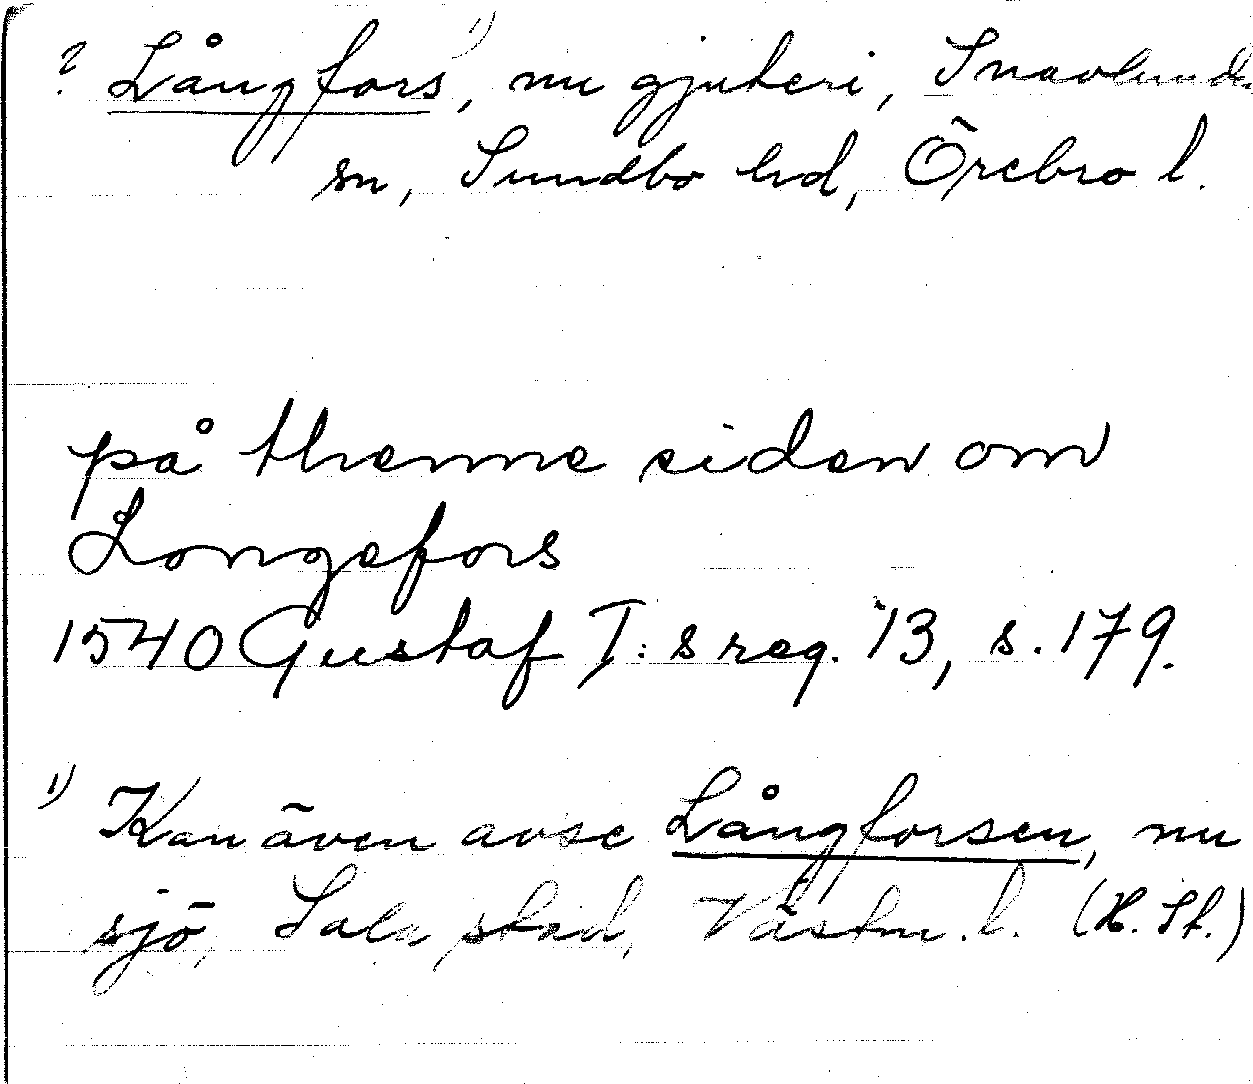 ? Långfors ¹⁾, nu gjuteri, Snavlunda
sn, Sundbo hd, Örebro l.
på thenne siden om
Longefors
1540 Gustaf I:s reg. 13, s. 179.
¹⁾ Kan även avse Långforsen, nu
sjö, Sala stad, Västm. l. (H. St.)